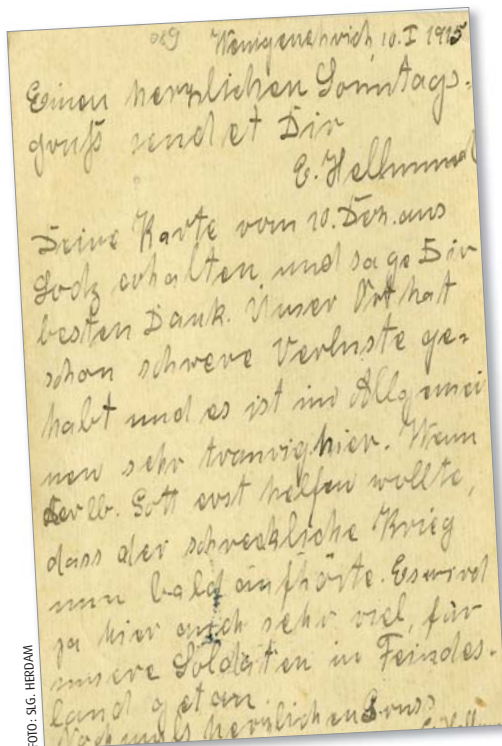 080 10. I 1915
Einen herzlichen Sonntags-
gruß sendet Dir
E. Hellmund
Deine Karte vom 10. Dez. aus
Lodz erhalten und sage Dir
besten Dank. Unser Ort hat
schon schwere Verluste ge-
habt und es ist im Allgemei
nen sehr traurig hier. Wenn
der lb. Gott erst helfen wollte,
dass der schreckliche Krieg
nun bald aufhörte. Es wird
ja hier auch sehr viel, für
unsere Soldaten in Feindes-
land getan.
Nochmals herzlichen Gruss
FOTO: SLG. HERDAM